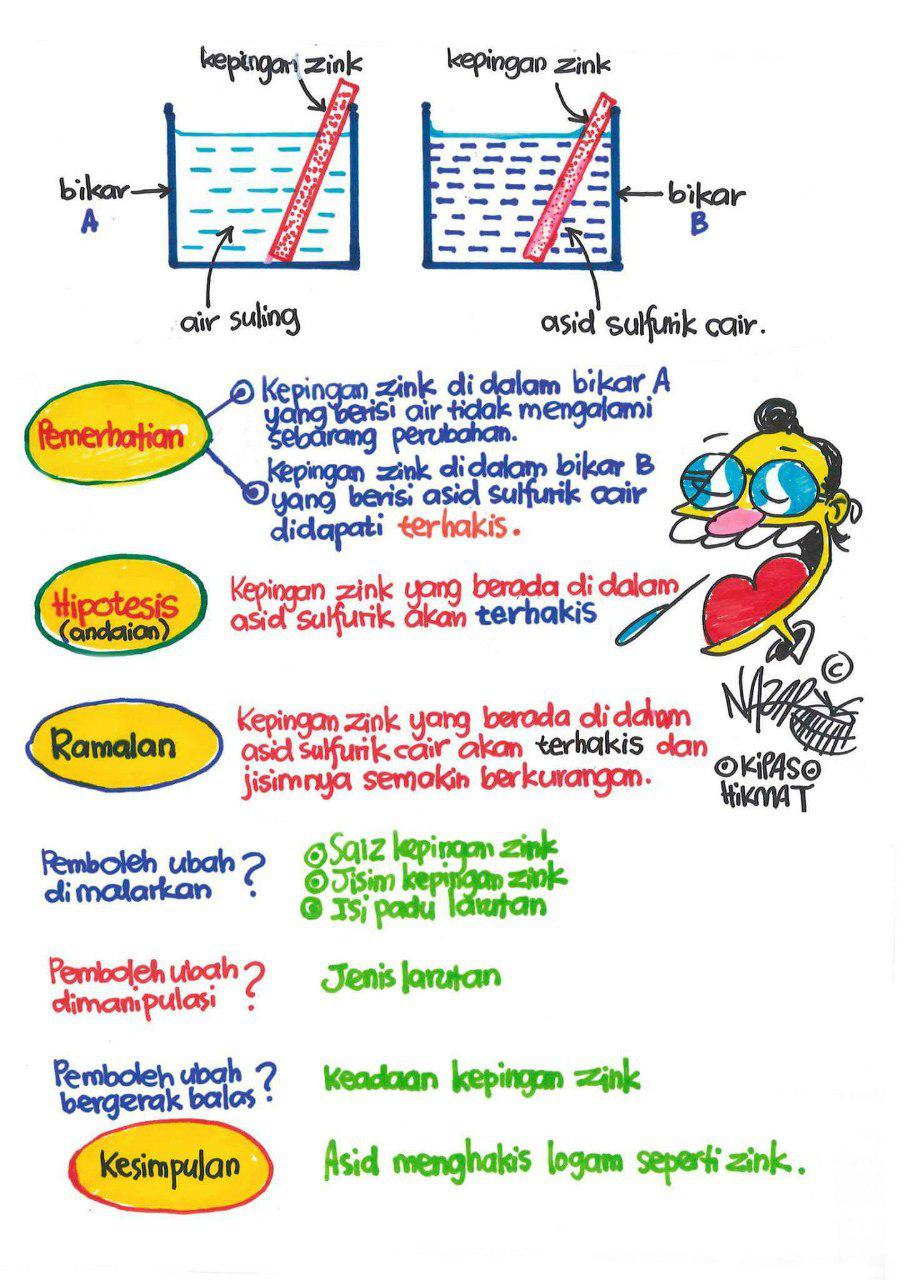 kepingan zink
kepingan zink
bikar
A
bikar
B
air suling
asid sulfurik cair.
Pemerhatian
Kepingan zink di dalam bikar A
yang berisi air tidak mengalami
sebarang perubahan.
Kepingan zink didalam bikar B
yang berisi asid sulfurik cair
didapati terhakis.
Hipotesis
(andaian)
Kepingan zink yang berada di dalam
asid sulfurik akan terhakis
©
NAZAR
Ramalan
Kepingan zink yang berada di dalam
asid sulfurik cair akan terhakis dan
jisimnya semakin berkurangan.
KiPAS
HiKMAT
Pemboleh ubah
di malarkan ?
Saiz kepingan zink
Jisim kepingan zink
Isi padu larutan
Pemboleh ubah
dimanipulasi ?
Jenis larutan
Pemboleh ubah
bergerak balas ?
Keadaan kepingan zink
Kesimpulan
Asid menghakis logam seperti zink.